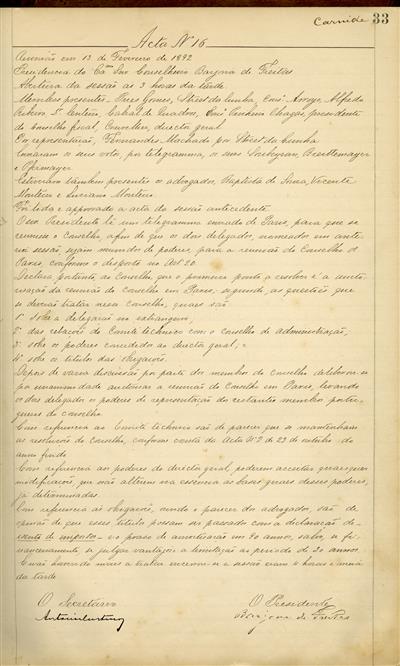 Carnide 33
Acta Nº 16
Reunião em 13 de Fevereiro de 1892
Presidencia do Exmo Snr Conselheiro Barjona de Freitas
Abertura da sessão ás 3 horas da tarde
Membros presentes Pires Gomes, da Cunha, Arroyo, Alfredo
Ribeiro, Centeno, Cabral de Quadros, Pinheiro Chagas, presidente
do conselho fiscal, director geral
Por representação, Fernandes Machado por da Cunha
Enviaram os seus votos, por telegramma, os snrs
e
Estiveram tambem presentes os advogados, Baptista de Sousa, Vicente
Monteiro e Monteiro
Foi lida e approvada a acta da sessão antecedente
O snr Presidente lê um telegramma enviado de Paris, para que se
reunisse o Conselho afim de que os dois delegados, nomeados em
sessão, sejam munidos de poderes, para a reunião do Conselho de
Paris, conforme o disposto no Art 20.
Declara, portanto, ao Conselho, que o primeiro ponto a resolver é a
da reunião do conselho em Paris, segundo as questões que
se deverão tratar nesse conselho, quaes são
1º sobre a delegação no extrangeiro,
2º das relações do Comité technico com o conselho de administração,
3º sobre os poderes concedidos ao director geral, e
4º sobre os titulos das obrigações.
Depois de varia discussão por parte dos membros do conselho
por unanimidade auctorisar a reunião do Conselho em Paris, levando
os dois delegados os poderes de representação dos restantes membros portu-
guezes do conselho
Com referencia ao Comité technico são de parecer que se mantenham
as resoluções do Conselho, conforme consta da Acta Nº 2 de 23 de outubro do
anno findo
Com referencia aos poderes do director geral, poderem acceitar quaesquer
modificações, que não alterem na essencia as bases geraes desses poderes,
já determinadas.
Com referencia ás obrigações, ouvido o parecer do advogado, são de
opinião de que esses titulos possam ser passados com a declaração de-
isento de imposto- e o praso de amortisação em 90 annos, salvo, se fi-
nanceiramente, se julgar vantajosa a limitação ao periodo de 30 annos.
E não havendo mais a tratar encerrou-se a sessão eram 4 horas e meia
da tarde
O Secretario
O Presidente
Barjona de Freitas